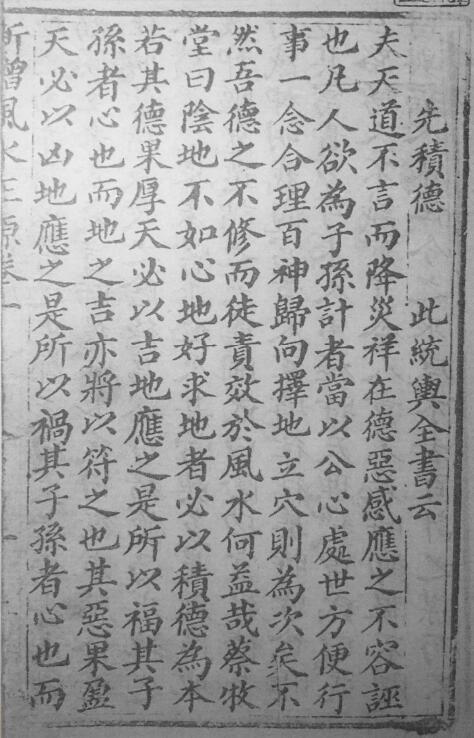 先積德 此統輿全書云
夫天道不言而降災祥在德惡感應之不容誣
也凡人欲為子孫計者當以公心處世方便行
事一念合理百神歸向擇地立穴則為次矣不
然吾德之不修而徒責效於風水何益哉蔡牧
堂曰陰地不如心地好求地者必以積德為本
若其德果厚天必以吉地應之是所以福其子
孫者心也而地之吉亦將以符之也其惡果盈
天必以凶地應之是所以禍其子孫者心也而